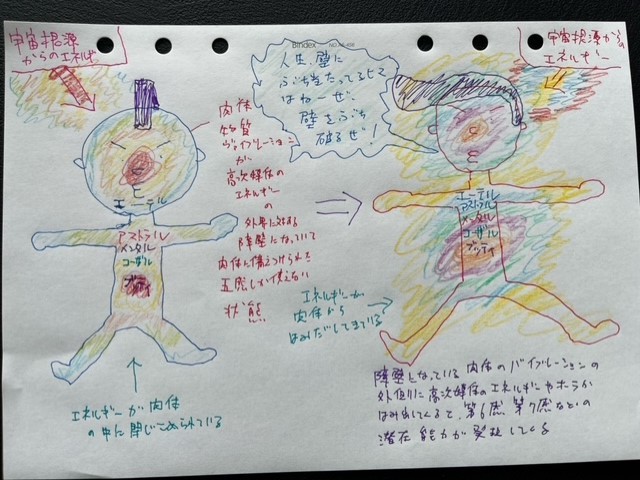 宇宙根源
からのエネルギー
Bindex
人生、壁に
ぶち当たってるヒマ
はねーぜ。
壁をぶち
破るぜ!
宇宙根源からの
エネルギー
肉体
物質
ヴァイブレーション
が
高次媒体の
エネルギー
の
外界に対する
障壁になっていて
肉体に備えつけられた
五感しか使えない
状態
エーテル
アストラル
メンタル
コーザル
ブッディ
エーテル
アストラル
メンタル
コーザル
ブッディ
エネルギーが
肉体から
はみだしてきている
エネルギーが肉体
の中に閉じこめられている
障壁となっている肉体のバイブレーションの
外側に高次媒体のエネルギーやオーラが
はみ出してくると、第6感 第7感などの
潜在能力が発現してくる